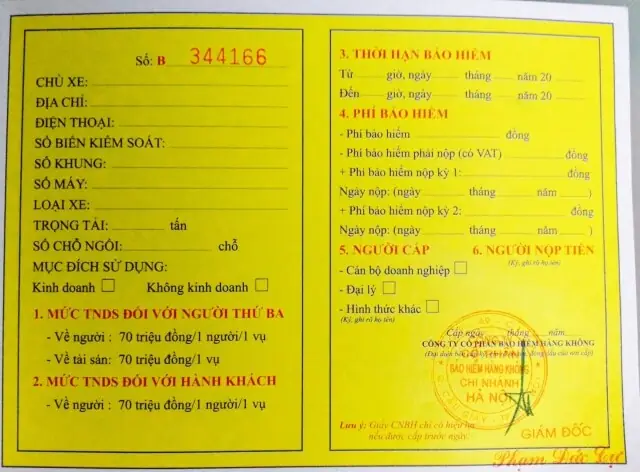 Số: B 344166
CHỦ XE:
ĐỊA CHỈ:
ĐIỆN THOẠI:
SỐ BIỂN KIỂM SOÁT:
SỐ KHUNG:
SỐ MÁY:
LOẠI XE:
TRỌNG TẢI: tấn
SỐ CHỖ NGỒI: chỗ
MỤC ĐÍCH SỬ DỤNG:
Kinh doanh Không kinh doanh
1. MỨC TNDS ĐỐI VỚI NGƯỜI THỨ BA
- Về người : 70 triệu đồng/1 người/1 vụ
- Về tài sản: 70 triệu đồng/1 vụ
2. MỨC TNDS ĐỐI VỚI HÀNH KHÁCH
- Về người : 70 triệu đồng/1 người/1 vụ
3. THỜI HẠN BẢO HIỂM
Từ giờ, ngày tháng năm 20
Đến giờ, ngày tháng năm 20
4. PHÍ BẢO HIỂM
- Phí bảo hiểm đồng
- Phí bảo hiểm phải nộp (có VAT) đồng
+ Phí bảo hiểm nộp kỳ 1: đồng
Ngày nộp: (ngày tháng năm )
+ Phí bảo hiểm nộp kỳ 2: đồng
Ngày nộp: (ngày tháng năm )
5. NGƯỜI CẤP 6. NGƯỜI NỘP TIỀN
(Ký, ghi rõ họ tên)
- Cán bộ doanh nghiệp
- Đại lý
- Hình thức khác
(Ký, ghi rõ họ tên)
Cấp ngày tháng năm
CÔNG TY CỔ PHẦN BẢO HIỂM HÀNG KHÔNG
BẢO HIỂM HÀNG KHÔNG
CHI NHÁNH
HÀ NỘI
Lưu ý: Giấy CNBH chỉ có hiệu lực
nếu được cấp trước ngày:
GIÁM ĐỐC
Phạm Đức